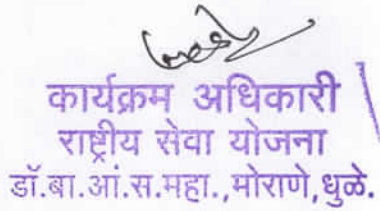 कार्यक्रम अधिकारी
राष्ट्रीय सेवा योजना
डॉ.बा.आं.स.महा.,मोराणे,धुळे.